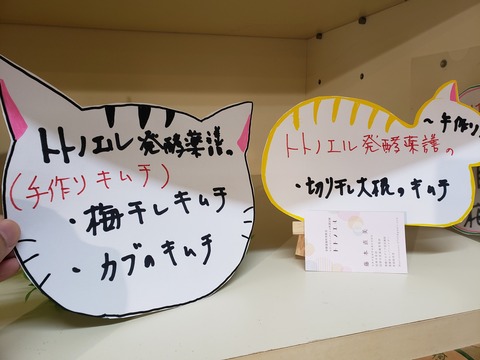 トトノエル発酵薬譜の
(手作りキムチ)
・梅干しキムチ
・カブのキムチ
～手作り
トトノエル発酵薬譜の
・切り干し大根のキムチ
トトノエル